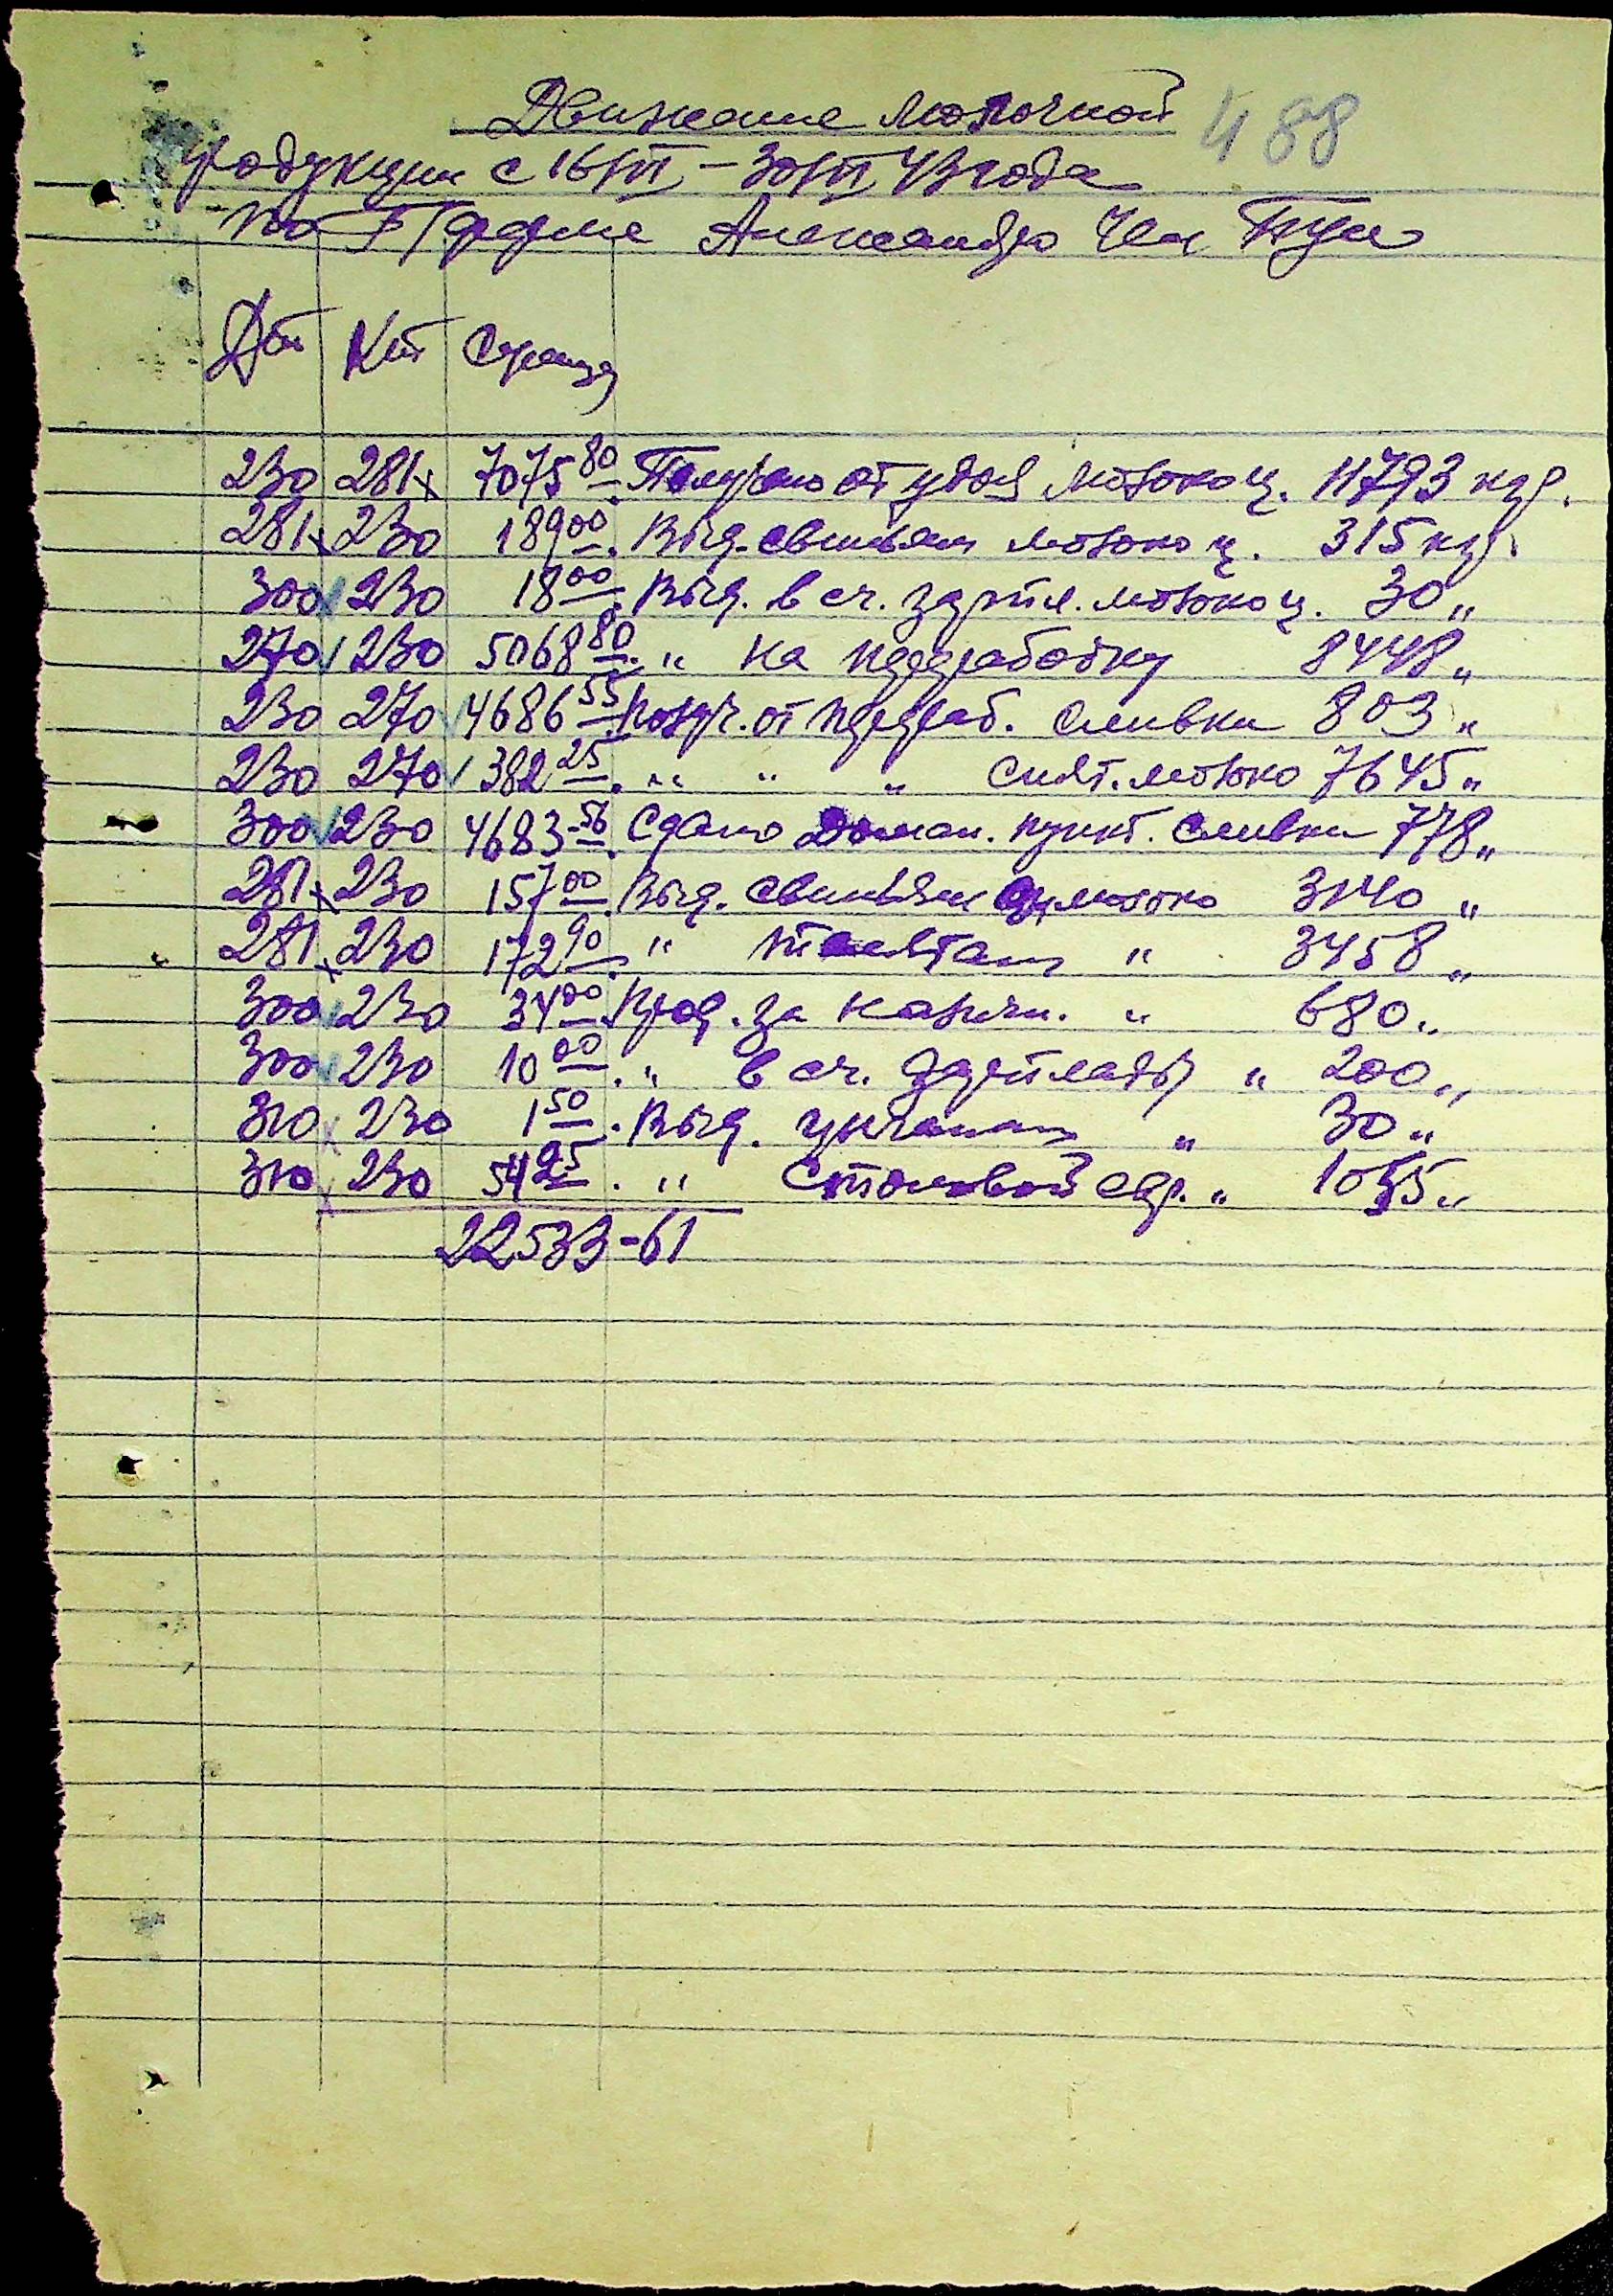 Движение молочной 488
продукции с 16/III – 30/III 43 года
по Г/ферме Александро
Дт Кт Сумма
230 281x 7075 80 Получено от удоя молоко ц. 11793 кгр.
281x 230 189 00 Выд. свиньям молоко ц. 315 кгр.
300 230 18 00 Выд. в сч. зарпл. молоко ц. 30 "
270 230 5068 80 " на переработку 8448 "
230 270 4686 55 Получ. от перераб. сливки 803 "
230 270 382 25 " " " снят. молоко 7645 "
300 230 4683-56 Сдано Доман. пункт. сливки 778 "
281x 230 157 00 Выд. свиньям молоко 3140 "
281x 230 172 90 " телятам " 3458 "
300 230 34 00 Прод. за наличн. " 680 "
300 230 10 00 " в сч. зарплаты " 200 "
310x 230 1 50 Выд. " 30 "
310x 230 54 25 " Столовой свр. "
22533-61